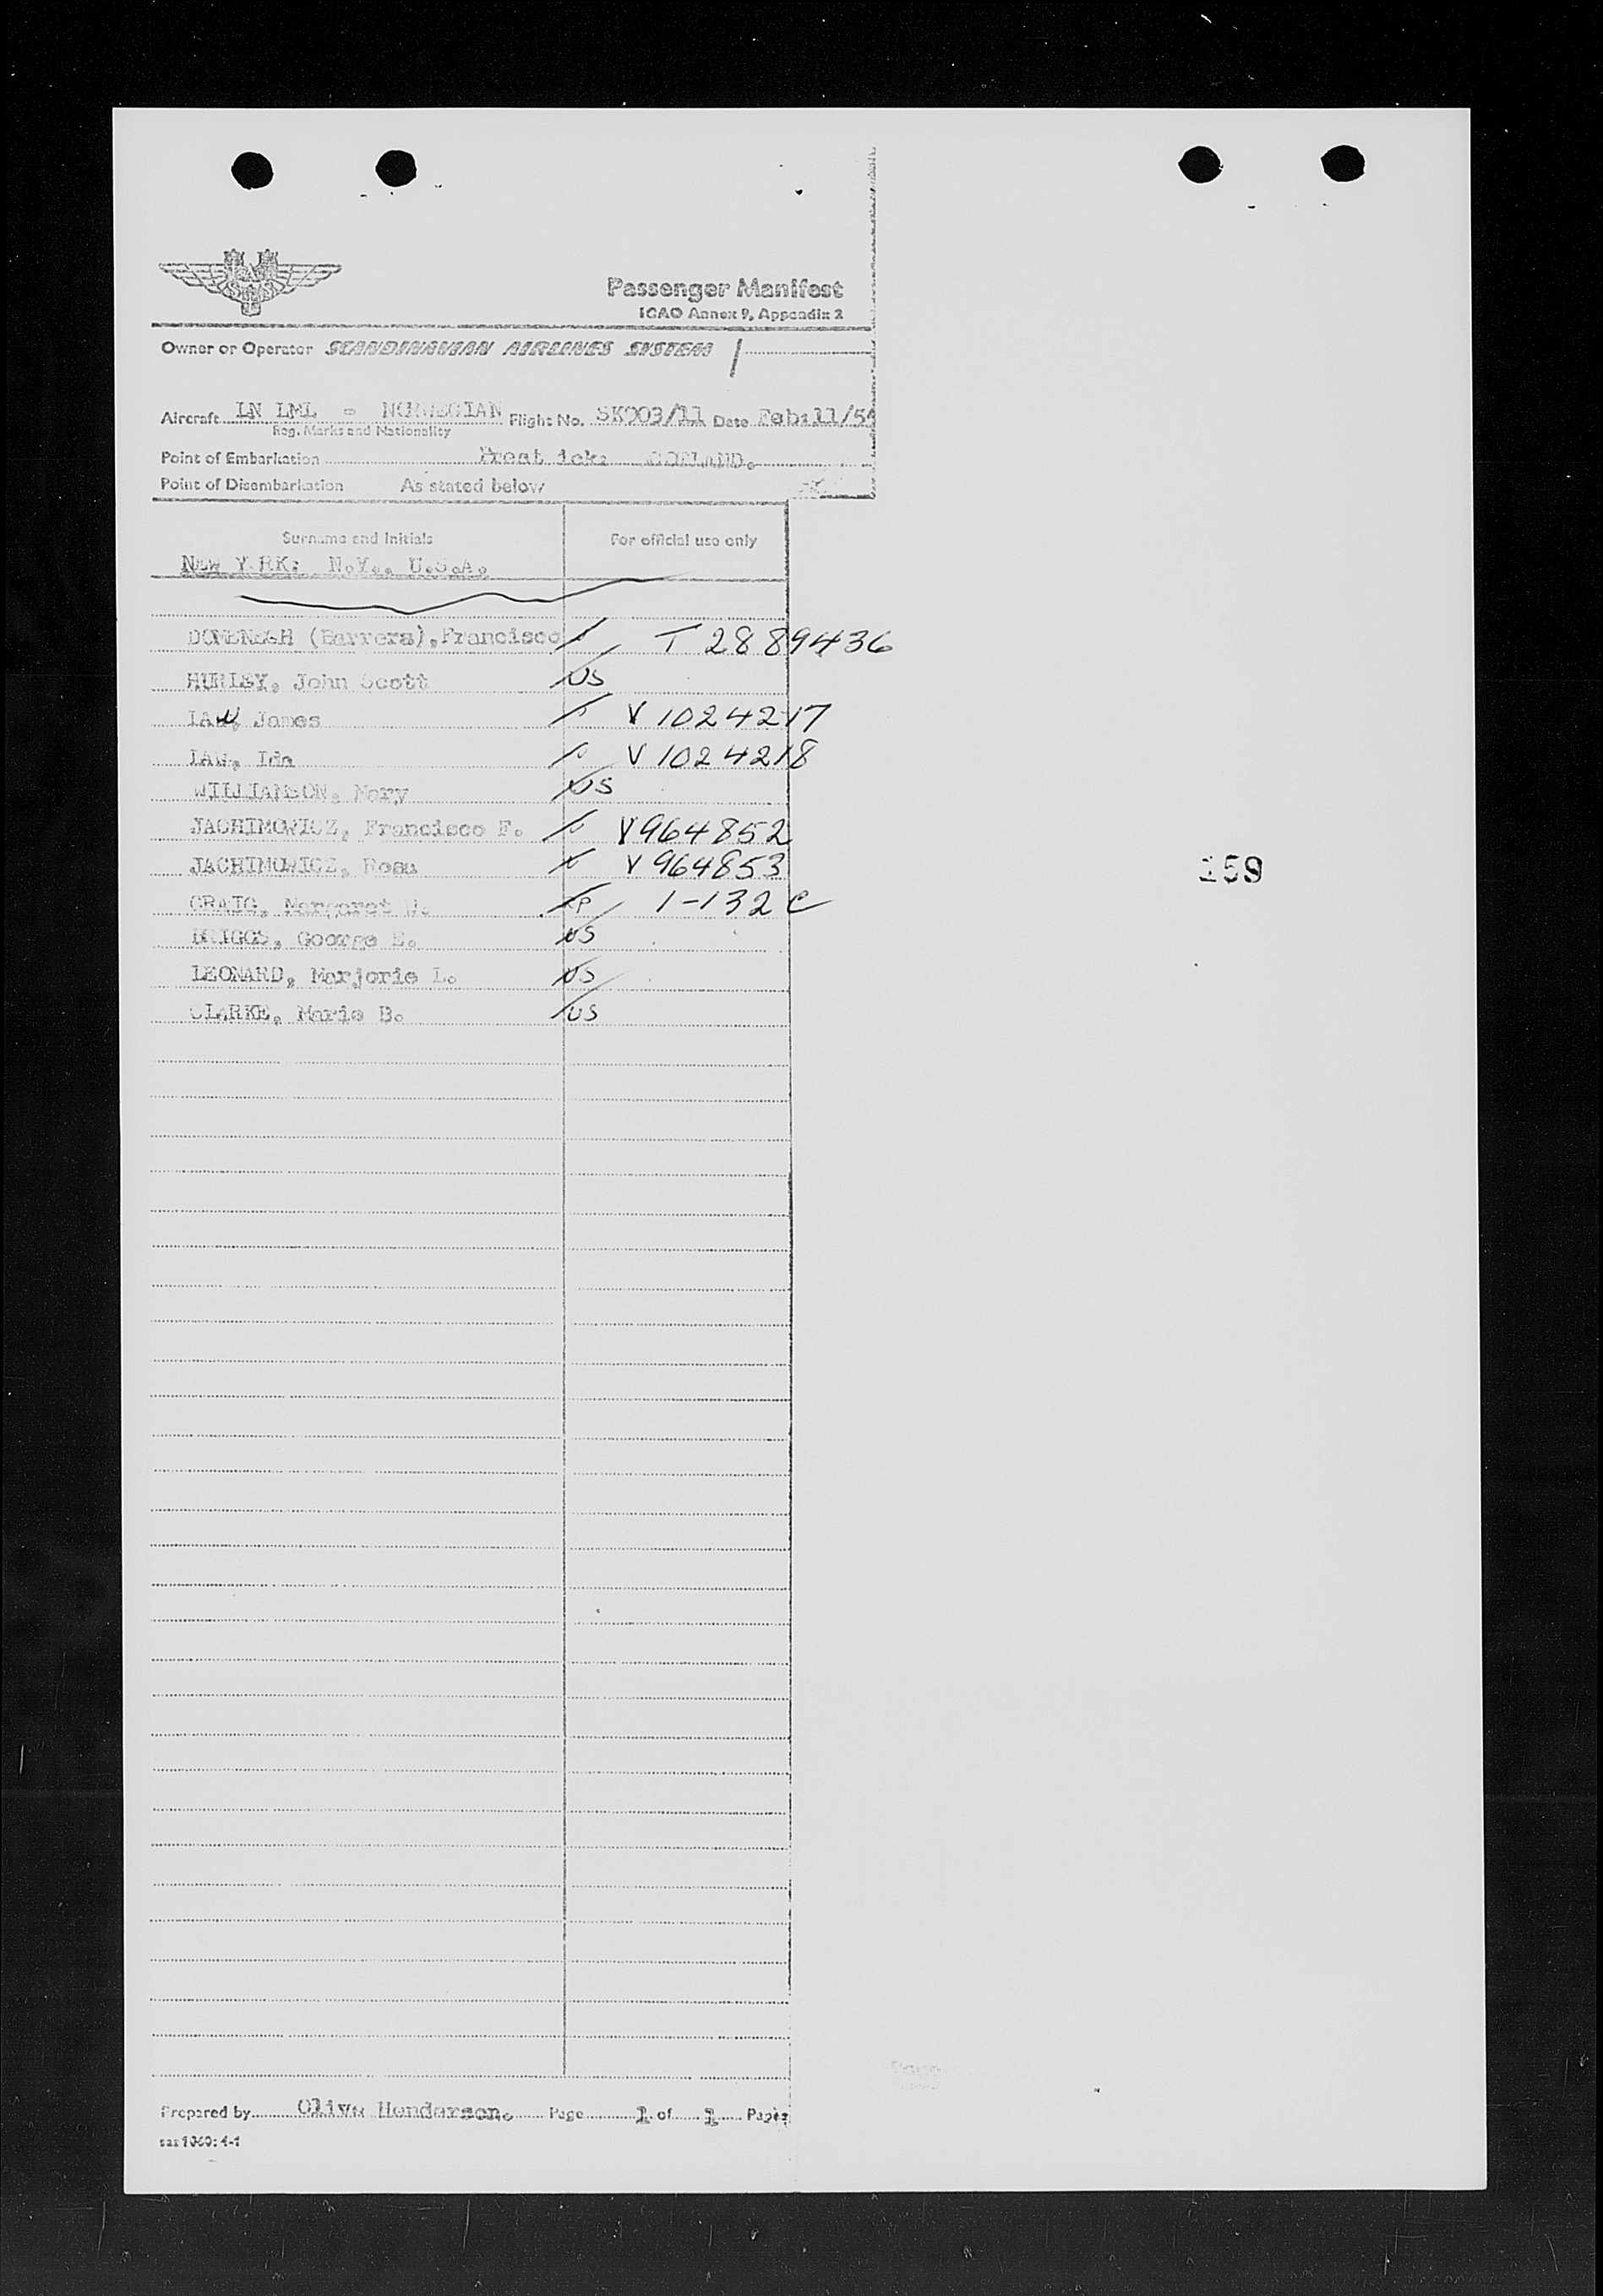 Passenger Manifest
ICAO Annex 9, Appendix 2
Owner or Operator SCANDINAVIAN AIRLINES SYSTEM
Aircraft LN LML - NORWEGIAN Flight No. SK903/11 Date Feb:11/5
Reg. Marks and Nationality
Point of Embarkation
Point of Disembarkation As stated below
Surname and Initials For official use only
NEW Y RK: N.Y., U.S.A.
DOMENECH (Barrera), Francisco T 2889436
HURLEY, John Scott US
LAW, James V 1024217
LAW, Ida V 1024218
WILLIAMSON, Mary US
JACHIMOWICZ, Francisco F. V 964852
JACHIMOWICZ, Rosa V 964853
CRAIG, Margaret RP 1-132 C
BRIGGS, George E. US
LEONARD, Marjorie L. US
CLARKE, Marie B. US
159
Prepared by Olive Henderson. Page 1 of 1 Pages
sas 1060:4-1